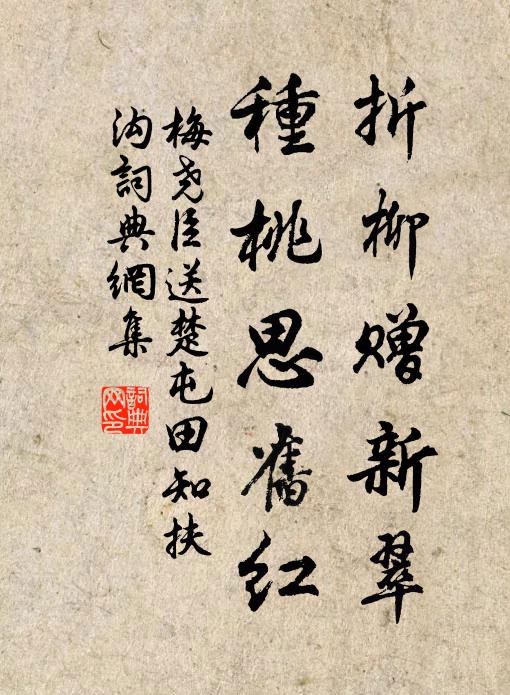 折柳赠新翠
種桃思舊红
梅尧臣送楚屯田知扶
沟詞典網集
詞典
网印